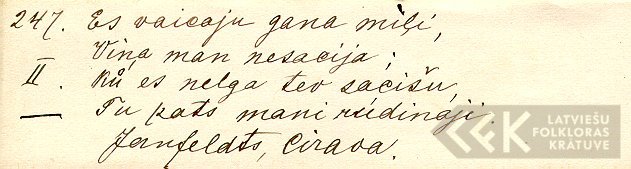 247. Es vaicaju gana miļi,
Viņa man nesacija;
II. Ků es nelga tev sacišu,
— Tu pats mani rūdinaji.
Janfeldts, Cirava.
LATVIEŠU
FOLKLORAS
KRĀTUVE